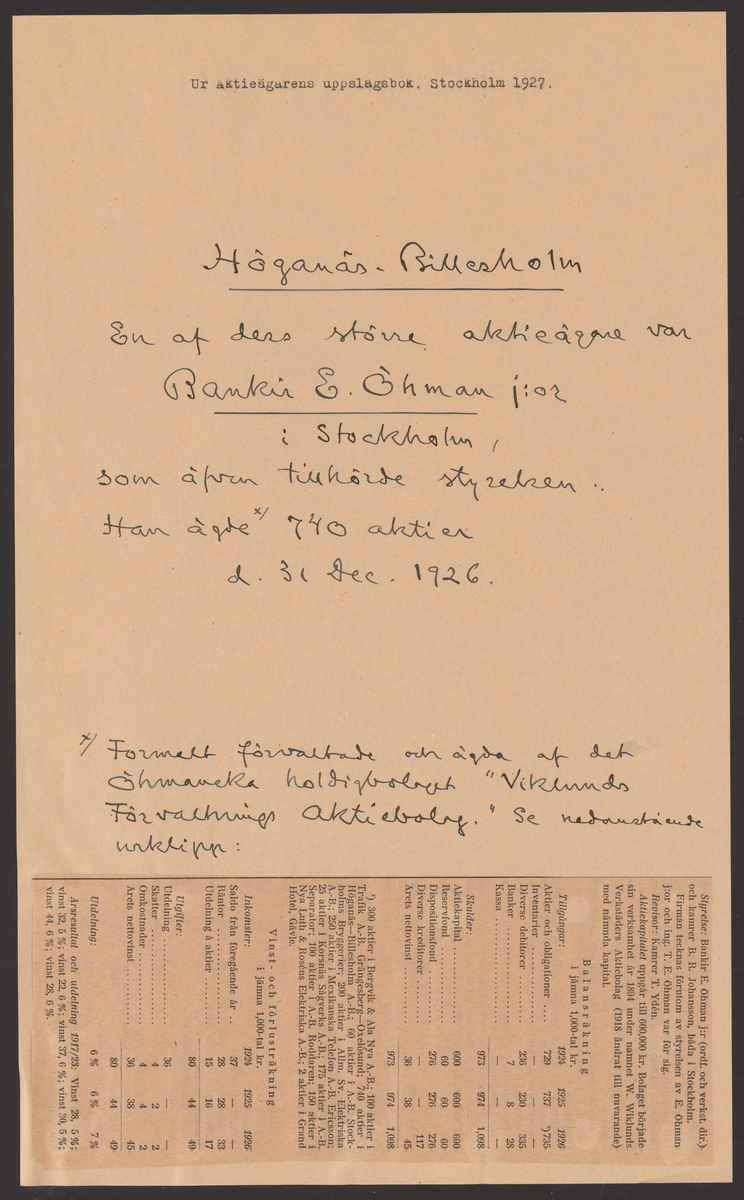 Ur Aktieägarens uppslagsbok. Stockholm 1927.
Höganäs - Billesholm
En af dess större aktieägare var
Bankir E. Öhman j:or
i Stockholm,
som äfven tillhörde styrelsen.
Han ägde x/ 740 aktier
d. 31 Dec. 1926.
x/ Formellt förvaltade och ägda af det
Öhmanska holdigbolaget "Viklunds
Förvaltnings Aktiebolag." Se nedanstående
urklipp:
Styrelse: Bankir E. Öhman j:r (ordf. och verkst. dir.)
och kamrer B. R. Johansson, båda i Stockholm.
Firman tecknas förutom av styrelsen av E. Öhman
j:or och ing. T. E. Öhman var för sig.
Revisor: Kamrer T. Ydén.
Aktiekapitalet uppgår till 600,000 kr. Bolaget började
sin verksamhet år 1894 under namnet W. Wiklunds
Verkstäders Aktiebolag (1918 ändrat till nuvarande)
med nämnda kapital.
Balansräkning
i jämna 1,000-tal kr.
Tillgångar: 1924 1925 1926
Aktier och obligationer .... 729 737 ¹)735
Inventarier ........ — — —
Diverse debitorer ........ 236 230 335
Banker ........ 7 8 28
Kassa ........ — — —
973 974 1,098
Skulder:
Aktiekapital ........ 600 600 600
Reservfond ........ 60 60 60
Dispositionsfond ........ 276 276 276
Diverse kreditorer ........ — — 117
Årets nettovinst ........ 36 38 45
973 974 1,098
¹) 300 aktier i Bergvik & Ala Nya A.-B.; 100 aktier i
Trafik A.-B. Grängesberg—Oxelösund; 740 aktier i
Höganäs—Billesholms A.-B.; 60 aktier i A.-B. Stock-
holms Bryggerier; 200 aktier i Allm. Sv. Elektriska
A.-B.; 250 aktier i Mexikanska Telefon A.-B. Ericsson;
25 aktier i Korsnäs Sågverks A.-B.; 175 aktier i A.-B.
Separator; 100 aktier i A.-B. Roddaren; 150 aktier i
Nya Luth & Roséns Elektriska A.-B.; 2 aktier i Grand
Hotel, Gävle.
Vinst- och förlusträkning
i jämna 1,000-tal kr.
Inkomster: 1924 1925 1926
Saldo från föregående år .. 37 — —
Räntor ........ 28 28 33
Utdelning å aktier ........ 15 16 17
80 44 49
Utgifter:
Utdelning ........ 36 — —
Skatter ........ 4 2 2
Omkostnader ........ 4 4 2
Årets nettovinst ........ 36 38 45
80 44 49
Utdelning: 6 % 6 % 7 %
Årsresultat och utdelning 1917/23: Vinst 28, 5 %;
vinst 32, 5 %; vinst 22, 6 %; vinst 37, 6 %; vinst 30, 5 %;
vinst 44, 6 %; vinst 28, 6 %.